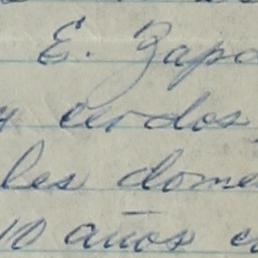 E. Zapo
y cerdos,
les dome
10 años e